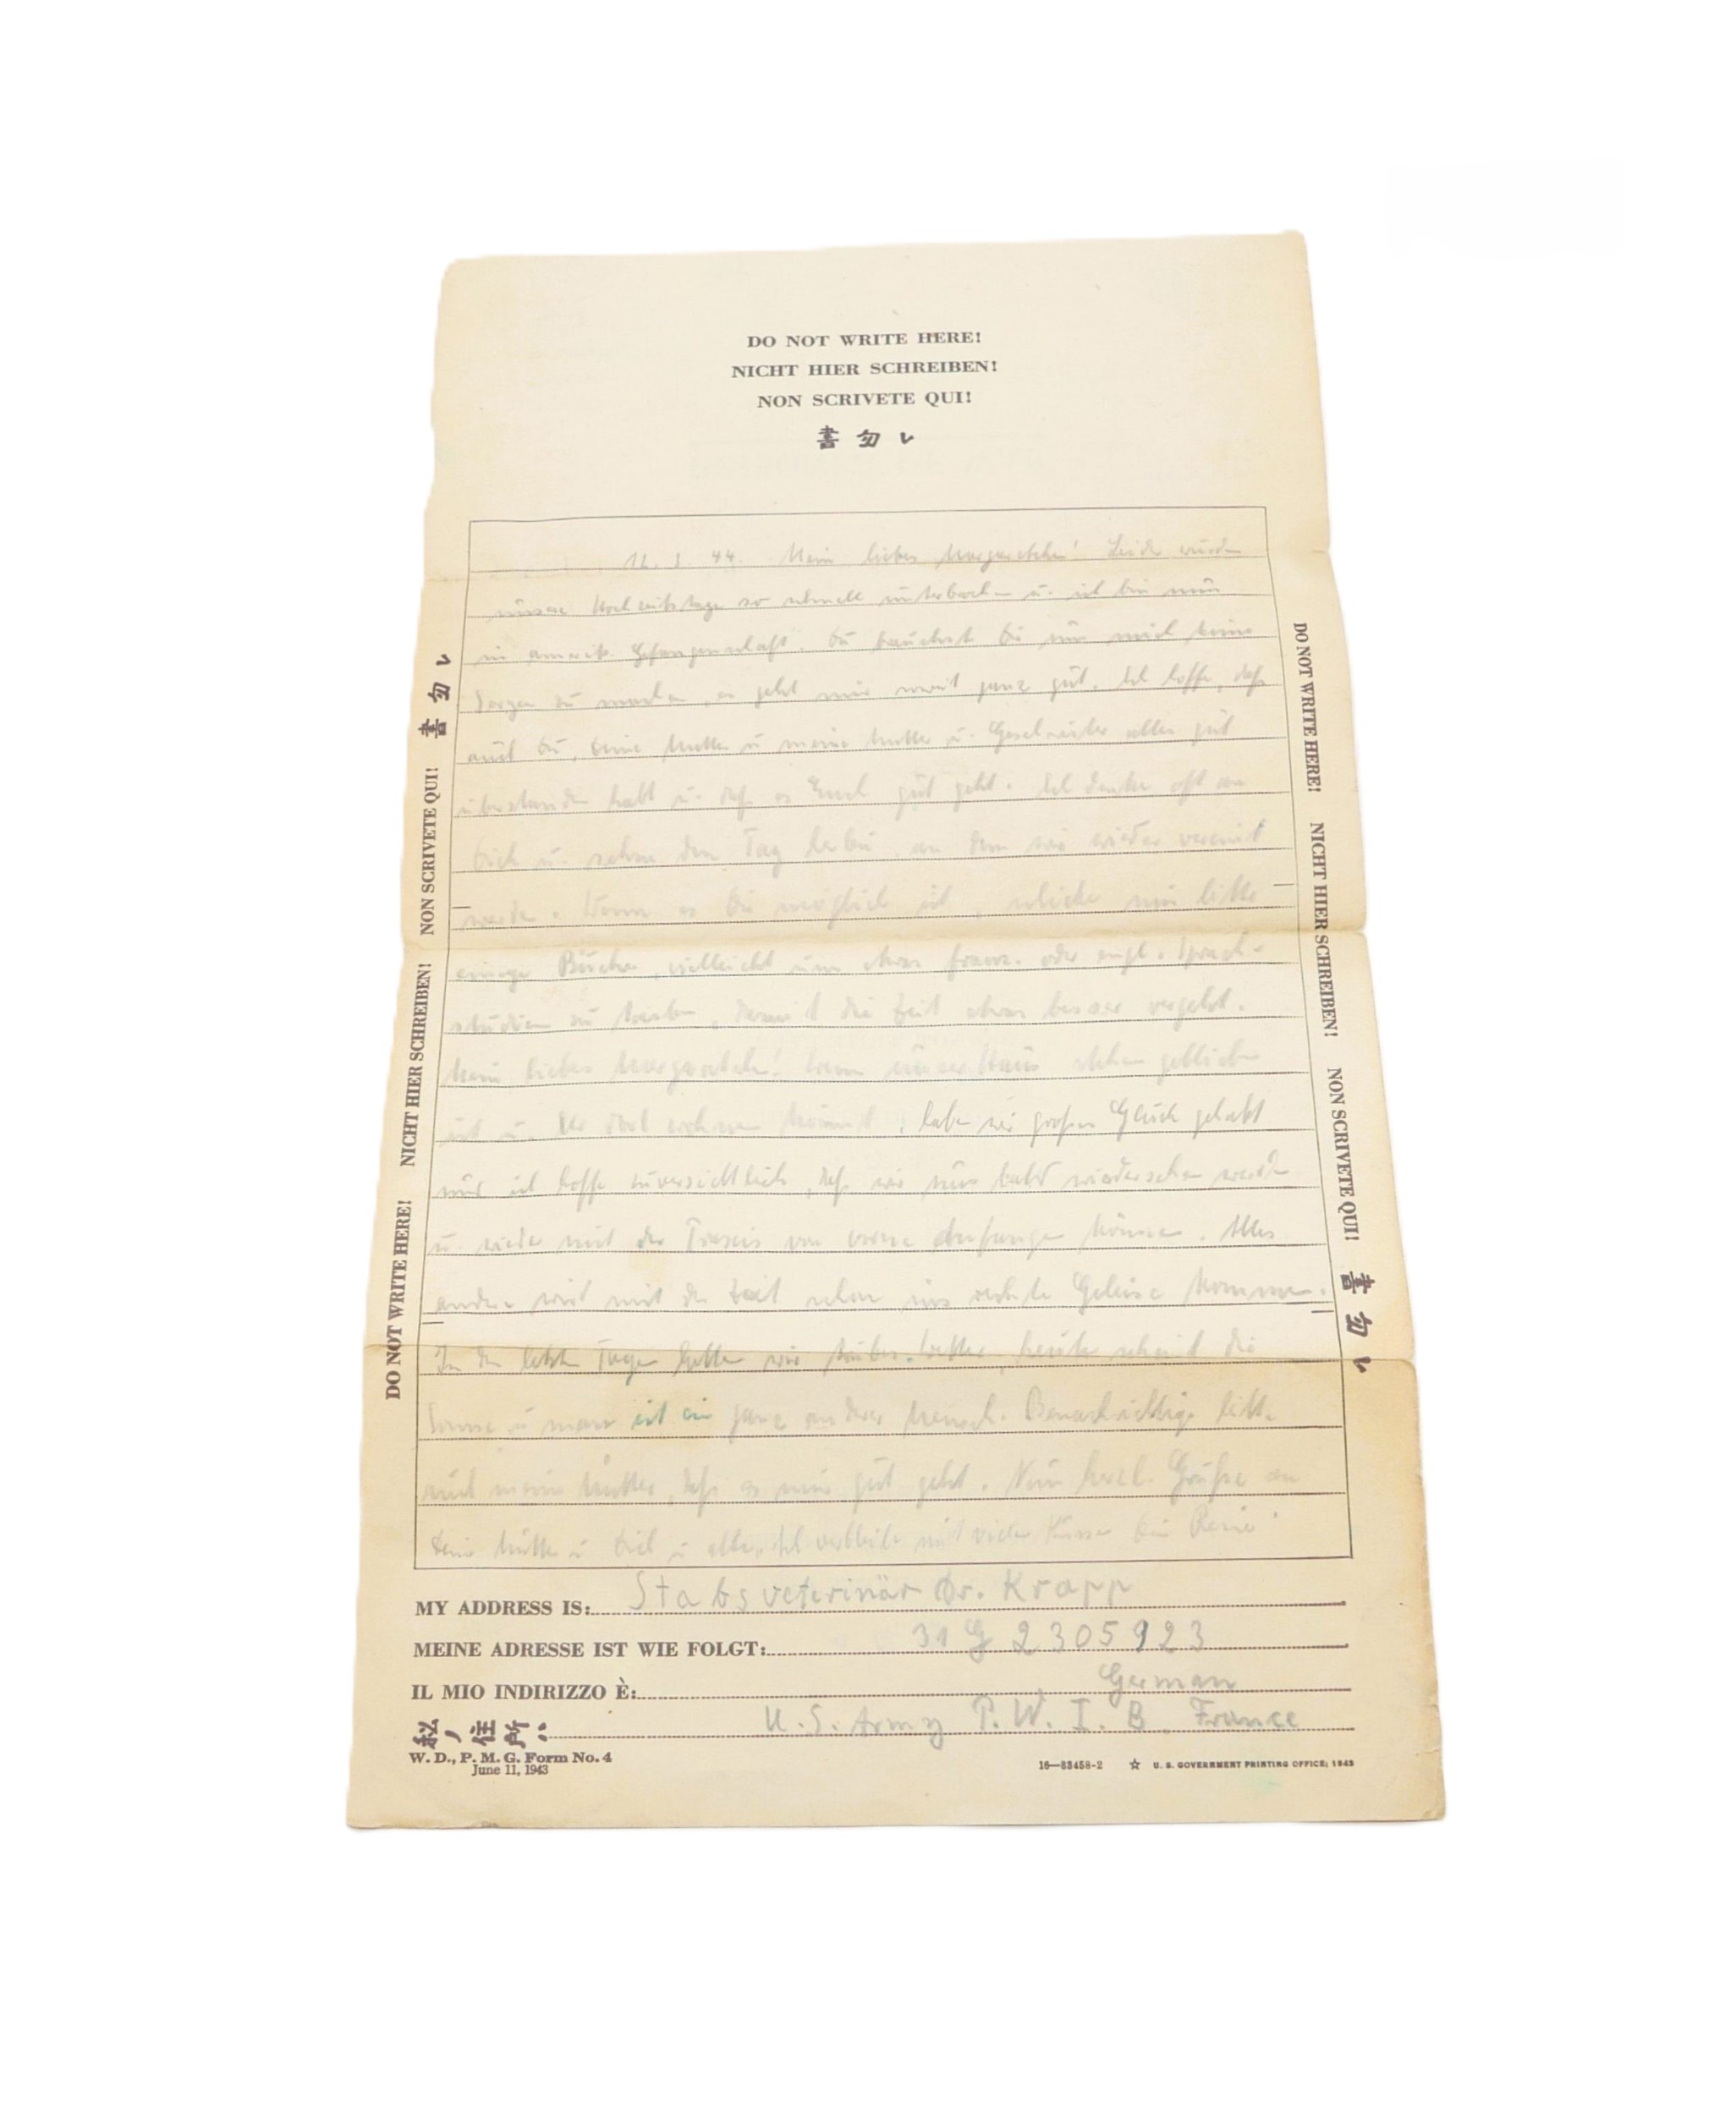 DO NOT WRITE HERE!
NICHT HIER SCHREIBEN!
NON SCRIVETE QUI!
書勿レ
44. Mein liebes Margaretchen! Leider wurden
unsere Hochzeitstage so schnell unterbrochen u. ich bin nun
in amerik. Gefangenschaft. Du brauchst Dir um mich keine
Sorgen zu machen, es geht mir soweit ganz gut. Ich hoffe, daß
auch Du, Deine Mutter u. meine Mutter u. Geschwister alles gut
überstanden habt u. daß es Euch gut geht. Ich denke oft an
Dich u. sehne den Tag herbei, an dem wir wieder vereint
werden. Wenn es Dir möglich ist, schicke mir bitte
einige Bücher, vielleicht um etwas franz. oder engl. Sprach-
studien zu treiben, damit die Zeit etwas besser vergeht.
Mein liebes Margaretchen! Wenn unser Haus stehen geblieben
ist u. Ihr dort wohnen könnt, haben wir großes Glück gehabt
und ich hoffe zuversichtlich, daß wir uns bald wiedersehen werden
u. wieder mit der Praxis von vorne anfangen können. Alles
andere wird mit der Zeit schon ins rechte Geleise kommen.
In den letzten Tagen hatten wir trübes Wetter, heute scheint die
Sonne u. man ist ein ganz anderer Mensch. Benachrichtige bitte
auch meine Mutter, daß es mir gut geht. Nun herzl. Grüße an
Deine Mutter u. Dich u. alle. Ich verbleibe mit vielen Küssen Dein
MY ADDRESS IS: Stabsveterinär Dr. Krapp
MEINE ADRESSE IST WIE FOLGT: 31 G 2305923
IL MIO INDIRIZZO È: German
私ノ住所: U.S. Army P.W.I.B. France
W. D., P. M. G. Form No. 4
June 11, 1943
16—33458-2 ☆ U. S. GOVERNMENT PRINTING OFFICE: 1943
DO NOT WRITE HERE! NICHT HIER SCHREIBEN! NON SCRIVETE QUI! 書勿レ
DO NOT WRITE HERE! NICHT HIER SCHREIBEN! NON SCRIVETE QUI! 書勿レ